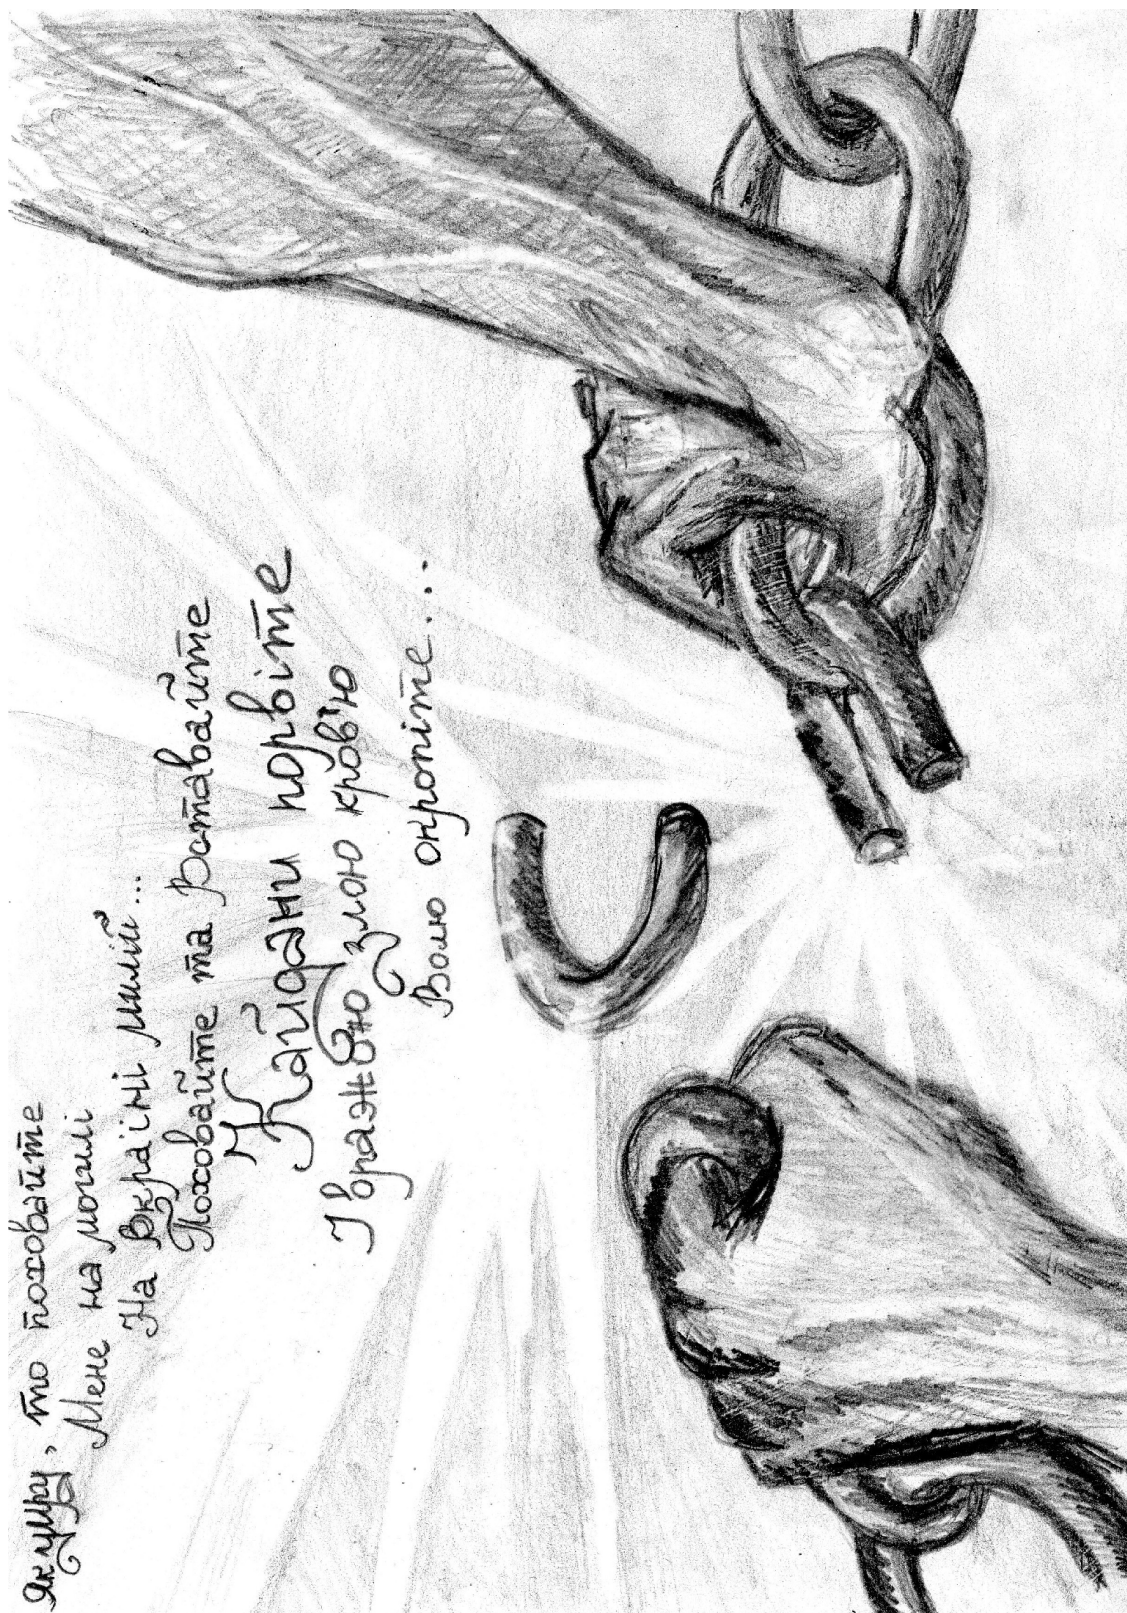 Як умру, то поховайте
Мене на могилі
На Вкраїні милій...
Поховайте та вставайте
Кайдани порвіте
І вражою злою кров'ю
Волю окропіте...